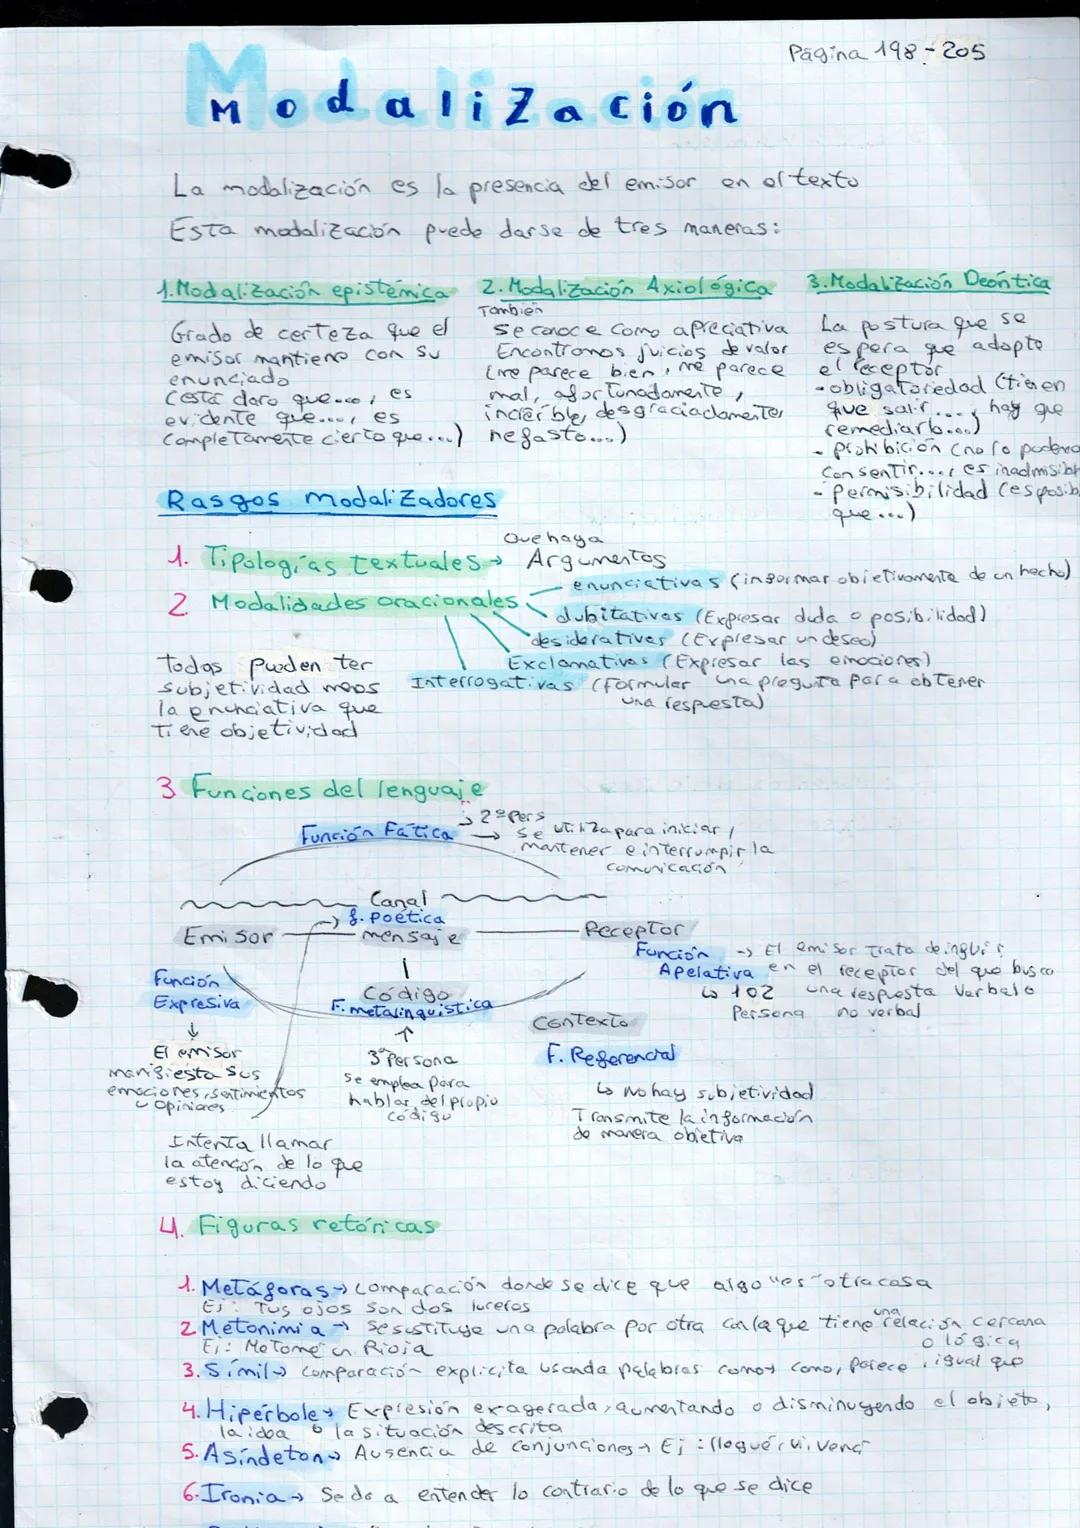 Página 198-205
Modalización
La modalización es la presencia del emisor en el texto
Esta modalización puede darse de tres maneras:
1. Modalización epistémica
Grado de certeza que el
emisor mantiene con su
enunciado
(está claro que..., es
evidente que..., es
completamente cierto que...)
2. Modalización Axiológica
También
se conoce como apreciativa
Encontramos juicios de valor
(me parece bien, me parece
mal, afortunadamente,
increíble, desgraciadamente,
nefasto...)
3. Modalización Deóntica
La postura que se
espera que adopte
el receptor
- obligatoriedad (tienen
que salir..., hay que
remediarlo...)
- prohibición (no lo podemo
consentir..., es inadmisibl
- permisibilidad (es posib
que...)
Rasgos modalizadores
1. Tipologías textuales → Que haya
Argumentos
2 Modalidades oracionales
enunciativas (informar objetivamente de un hecho)
dubitativas (Expresar duda o posibilidad)
desiderativas (Expresar un deseo)
Exclamativas (Expresar las emociones)
Interrogativas (Formular una pregunta para obtener
una respuesta)
Todas pueden ter
subjetividad mens
la enunciativa que
tiene objetividad
3 Funciones del lenguaje
Función Fática
→ 2ª Pers
→ Se utiliza para iniciar,
mantener e interrumpir la
comunicación
Canal
→ f. poética
Emisor
mensaje
Receptor
Función
Expresiva
↓
El emisor
manifiesta sus
emociones, sentimientos
u opiniones
Código
F. metalingüistica
↑
3ª Persona
Se emplea para
hablar del propio
código
Función
Apelativa
↳ 1 o 2
Persona
→ El emisor trata de influir
en el receptor del que busca
una respuesta verbal o
no verbal
Contexto
F. Referencial
↳ No hay subjetividad
Transmite la información
de manera objetiva
Intenta llamar
la atención de lo que
estoy diciendo
4. Figuras retóricas
1. Metáforas → comparación donde se dice que algo "es" otra cosa
Ej: Tus ojos son dos luceros
2 Metonimia → se sustituye una palabra por otra con la que tiene una relación cercana
o lógica
Ej: Me tomé un Rioja
3. Símil → comparación explicita usando palabras como → como, parece, igual que
4. Hipérbole → Expresión exagerada, aumentando o disminuyendo el objeto,
la idea o la situación descrita
5. Asíndeton → Ausencia de conjunciones → Ej: llegué, vi, vencí
6. Ironía → Se da a entender lo contrario de lo que se dice